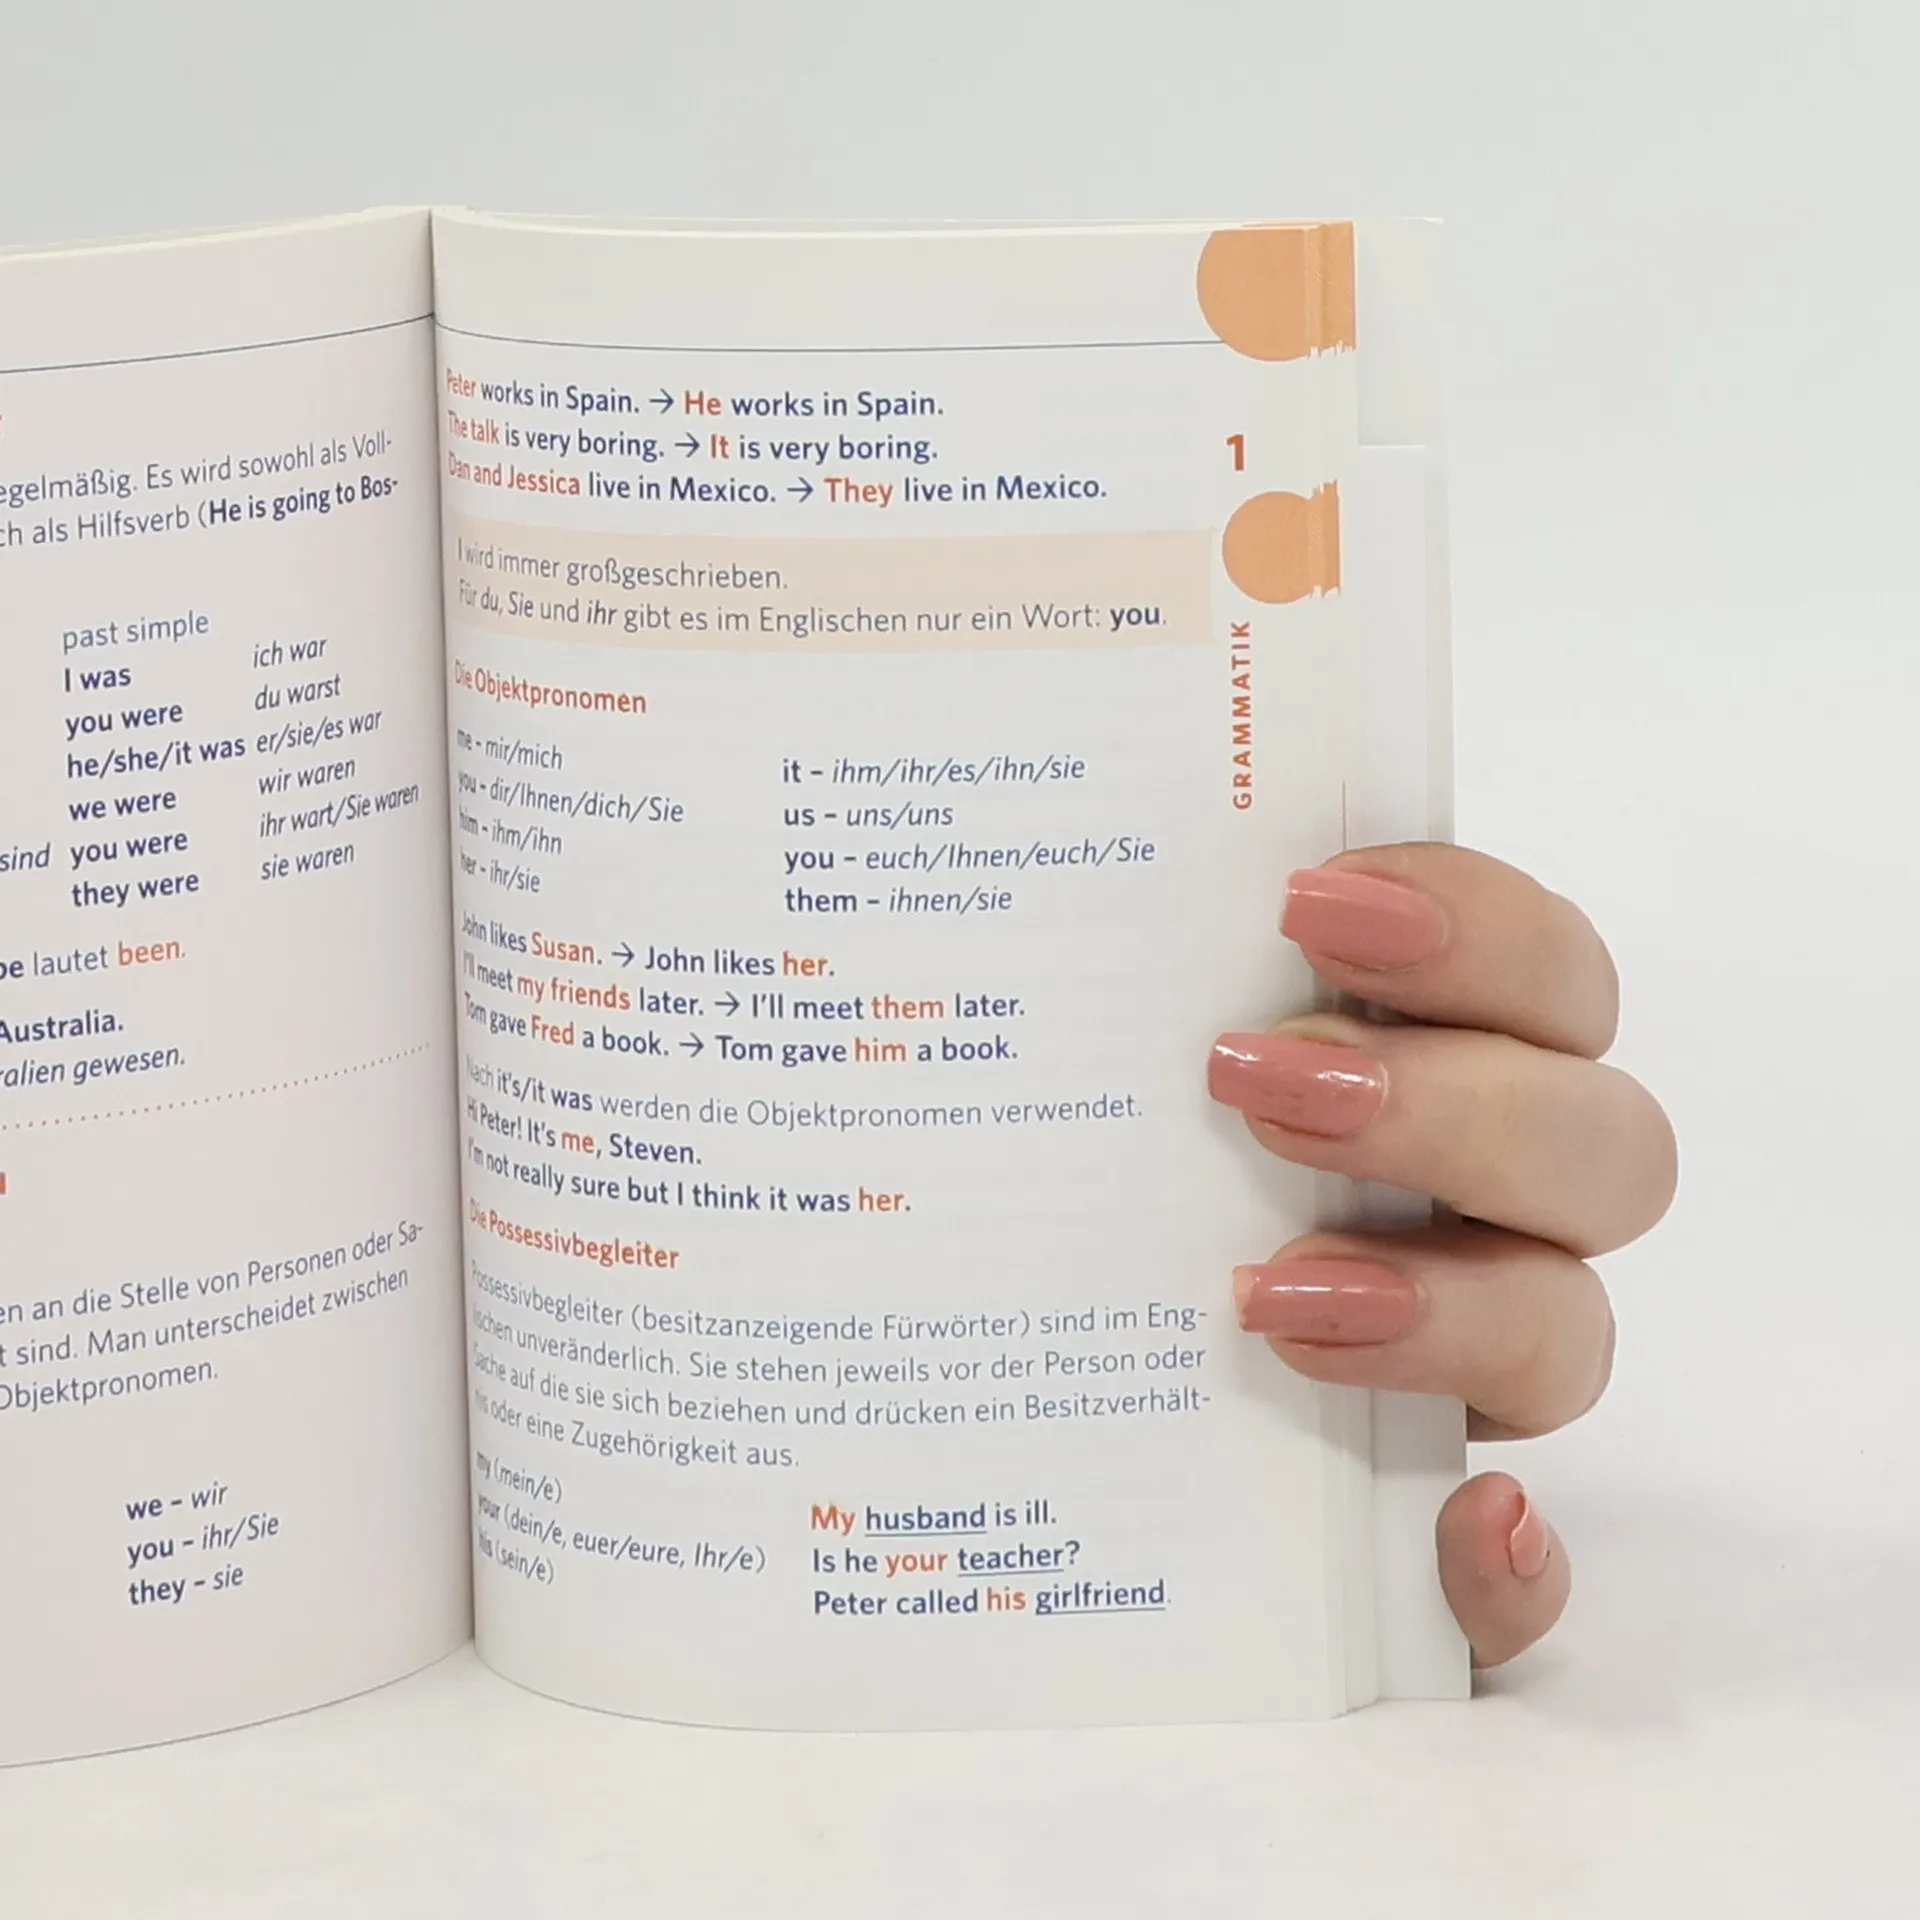 egelmäßig. Es wird sowohl als Voll-
ch als Hilfsverb (He is going to Bos-
past simple
I was ich war
you were du warst
he/she/it was er/sie/es war
we were wir waren
sind you were ihr wart/Sie waren
they were sie waren
be lautet been.
Australia.
ralien gewesen.
en an die Stelle von Personen oder Sa-
t sind. Man unterscheidet zwischen
Objektpronomen.
we – wir
you – ihr/Sie
they – sie
Peter works in Spain. → He works in Spain.
The talk is very boring. → It is very boring.
Dan and Jessica live in Mexico. → They live in Mexico.
I wird immer großgeschrieben.
Für du, Sie und ihr gibt es im Englischen nur ein Wort: you.
Die Objektpronomen
me – mir/mich it – ihm/ihr/es/ihn/sie
you – dir/Ihnen/dich/Sie us – uns/uns
him – ihm/ihn you – euch/Ihnen/euch/Sie
her – ihr/sie them – ihnen/sie
John likes Susan. → John likes her.
I'll meet my friends later. → I'll meet them later.
Tom gave Fred a book. → Tom gave him a book.
Nach it's/it was werden die Objektpronomen verwendet.
Hi Peter! It's me, Steven.
I'm not really sure but I think it was her.
Die Possessivbegleiter
Possessivbegleiter (besitzanzeigende Fürwörter) sind im Eng-
lischen unveränderlich. Sie stehen jeweils vor der Person oder
Sache auf die sie sich beziehen und drücken ein Besitzverhält-
nis oder eine Zugehörigkeit aus.
my (mein/e) My husband is ill.
your (dein/e, euer/eure, Ihr/e) Is he your teacher?
his (sein/e) Peter called his girlfriend.
1
GRAMMATIK